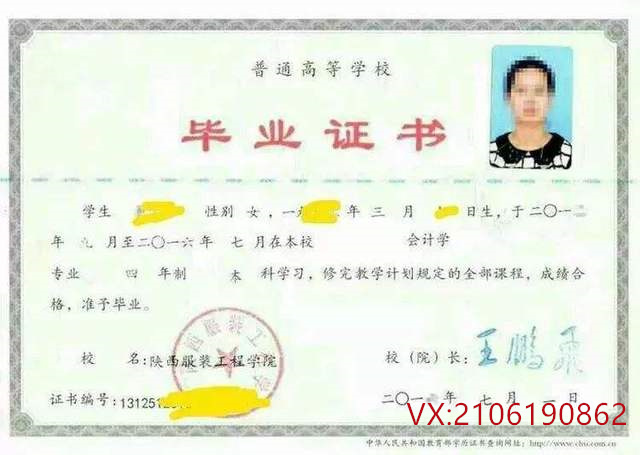 普通高等学校
毕业证书
学生 性别 女，一 年 三 月 日生，于二〇一二
年 九 月至二〇一六年 七 月在本校 会计学
专业 四 年制 本 科学习，修完教学计划规定的全部课程，成绩合
格，准予毕业。
校 名：陕西服装工程学院 校（院）长：王鹏飞
证书编号：131251 二〇一 年 七 月 一 日
VX:2106190862
中华人民共和国教育部学历证书查询网址：http://www.chsi.com.cn